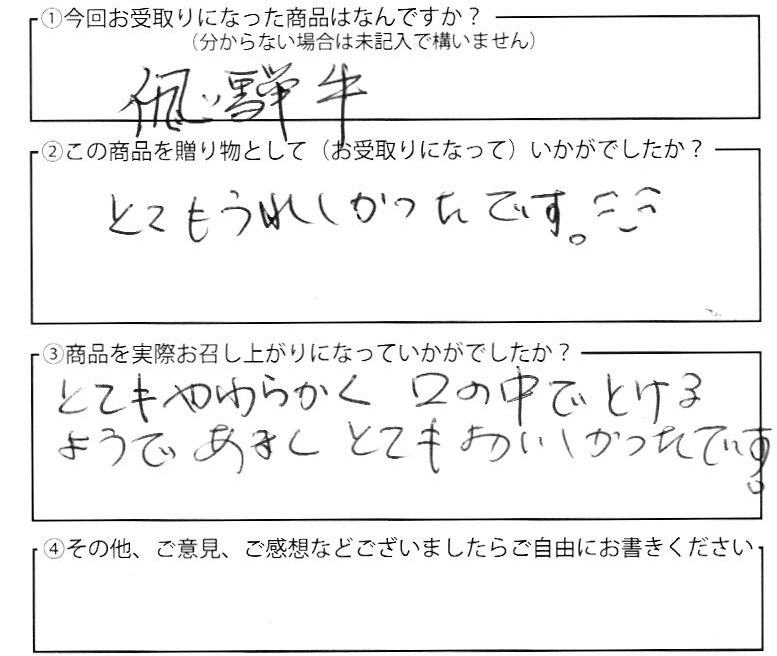 ①今回お受取りになった商品はなんですか？
（分からない場合は未記入で構いません）
飛騨牛
②この商品を贈り物として（お受取りになって）いかがでしたか？
とてもうれしかったです。
③商品を実際お召し上がりになっていかがでしたか？
とてもやわらかく 口の中でとける
ようで あまく とてもおいしかったです。
④その他、ご意見、ご感想などございましたらご自由にお書きください